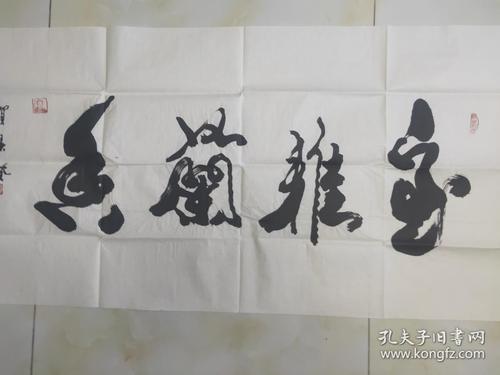 室雅兰香
孔夫子旧书网
www.kongfz.com